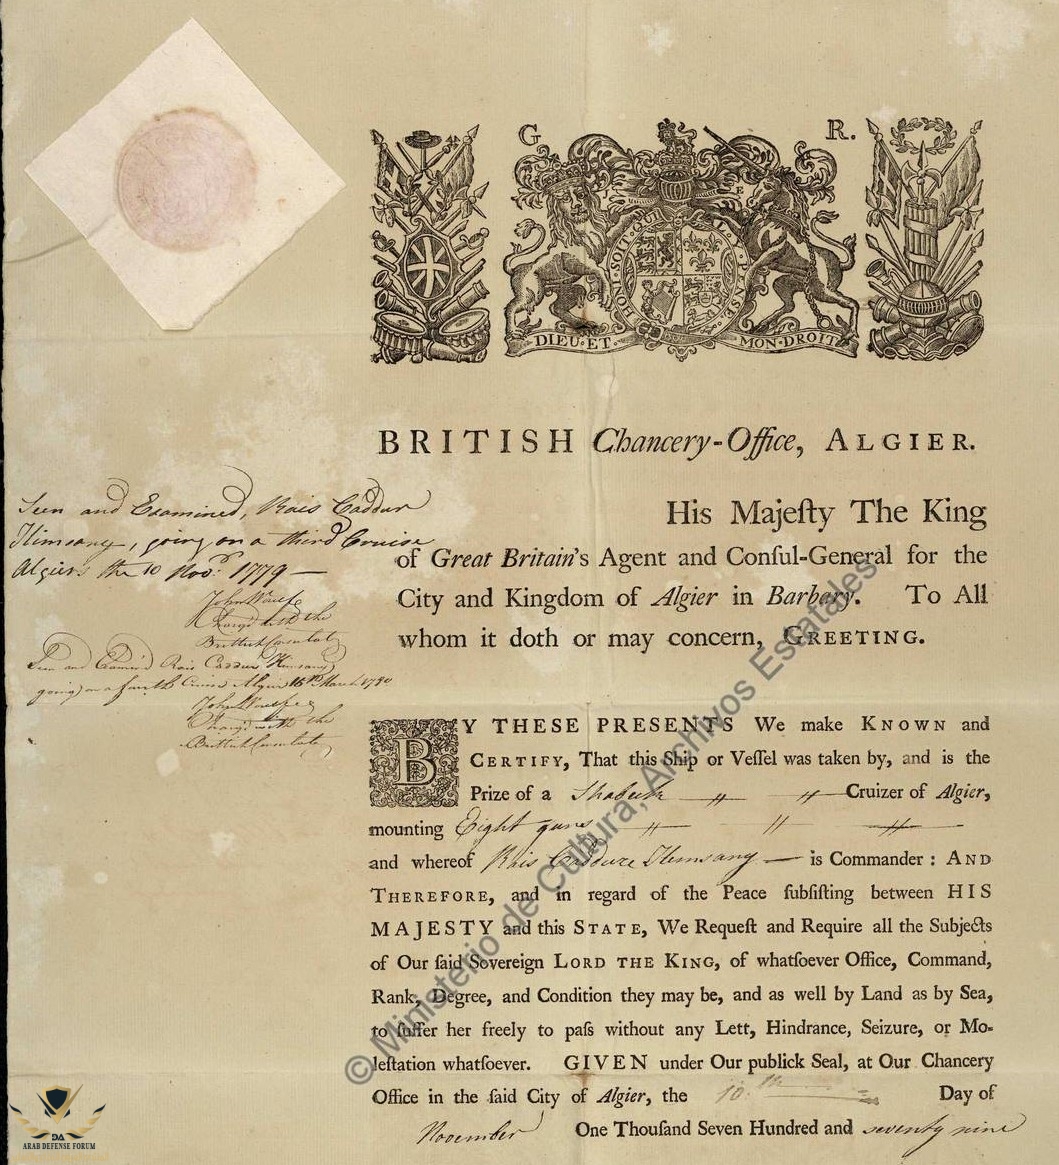 G R.
HONI·SOIT·QUI·MAL·Y·PENSE
DIEU·ET· MON·DROIT
BRITISH Chancery-Office, ALGIER.
Seen and Examined, Rais Caddur
Himsany, going on a third Cruise
Algiers the 10 Nov.r 1779 —
John Woulfe
Charg'd with the
British Consulate
Seen and Exam'd Rais Caddur Himsany
going on a fourth Cruise Algier 16th March 1780
John Woulfe
Charg'd with the
British Consulate
His Majeſty The King
of Great Britain's Agent and Conſul-General for the
City and Kingdom of Algier in Barbary. To All
whom it doth or may concern, GREETING.
BY THESE PRESENTS We make KNOWN and
CERTIFY, That this Ship or Veſſel was taken by, and is the
Prize of a Shabeck Cruizer of Algier,
mounting Eight guns
and whereof Rais Caddure Himsany — is Commander: AND
THEREFORE, and in regard of the Peace ſubſiſting between HIS
MAJESTY and this STATE, We Requeſt and Require all the Subjects
of Our ſaid Sovereign LORD THE KING, of whatſoever Office, Command,
Rank, Degree, and Condition they may be, and as well by Land as by Sea,
to ſuffer her freely to paſs without any Lett, Hindrance, Seizure, or Mo-
leſtation whatſoever. GIVEN under Our publick Seal, at Our Chancery
Office in the ſaid City of Algier, the 10.th Day of
November One Thouſand Seven Hundred and seventy nine
© Ministerio de Cultura, Archivos Estatales
DA
ARAB DEFENSE FORUM